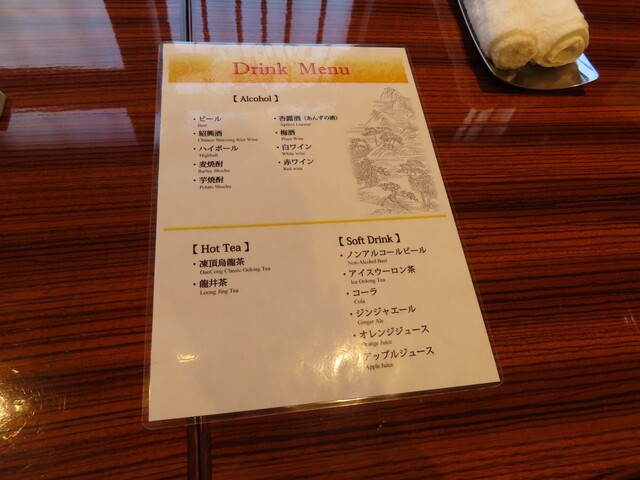 Drink Menu
【 Alcohol 】
・ビール
Beer
・紹興酒
Chinese Shaoxing Rice Wine
・ハイボール
Highball
・麦焼酎
Barley Shochu
・芋焼酎
Potato Shochu
・杏露酒（あんずの酒）
Apricot Liqueur
・梅酒
Plum Wine
・白ワイン
White wine
・赤ワイン
Red wine
【 Hot Tea 】
・凍頂烏龍茶
DanCong Classic Oolong Tea
・龍井茶
Loong Jing Tea
【 Soft Drink 】
・ノンアルコールビール
Non-Alcohol Beer
・アイスウーロン茶
Ice Oolong Tea
・コーラ
Cola
・ジンジャエール
Ginger Ale
・オレンジジュース
Orange Juice
アップルジュース
Apple Juice